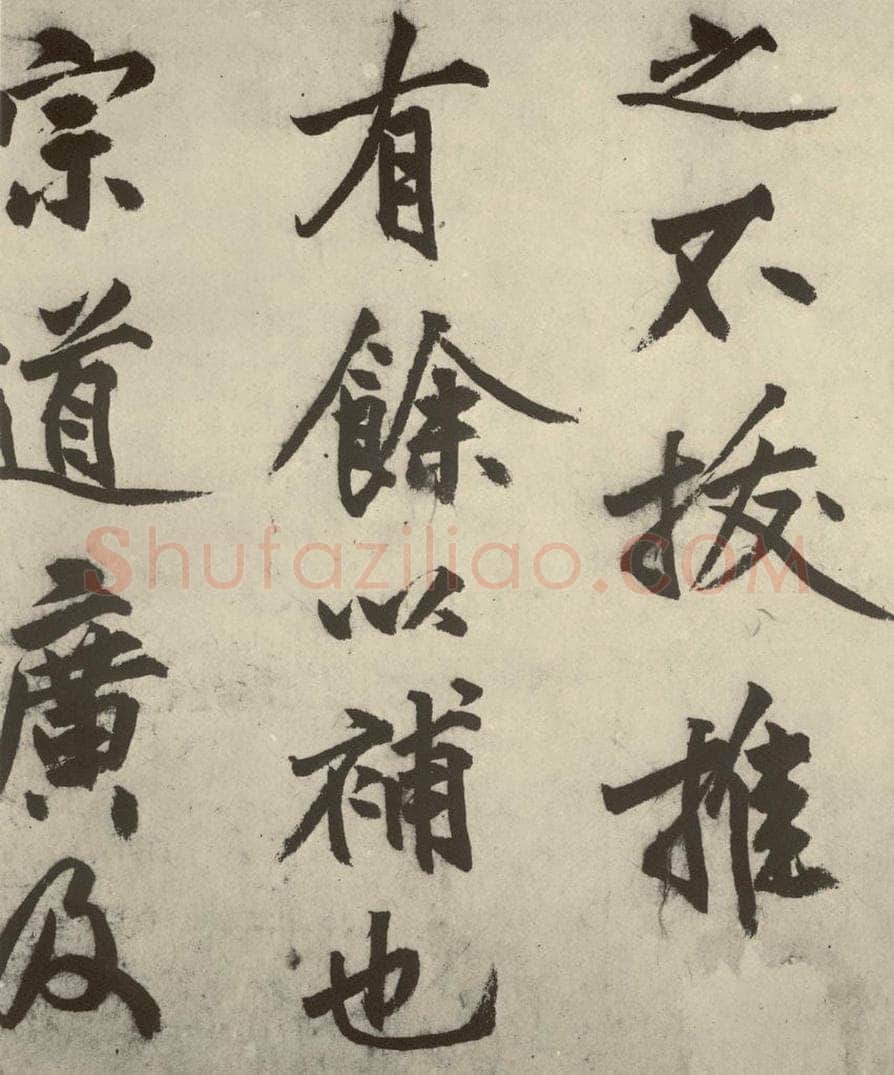 之不拔推
有餘以補也
宗道廣及
Shufaziliao.COM